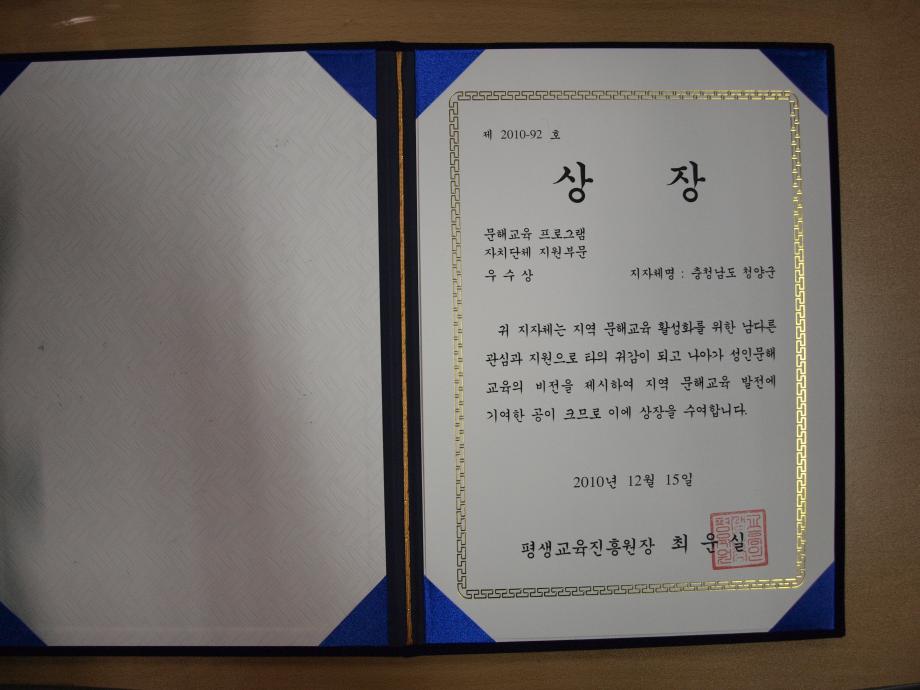 제 2010-92 호
상 장
문해교육 프로그램
자치단체 지원부문
우수상
지자체명 : 충청남도 청양군
귀 지자체는 지역 문해교육 활성화를 위한 남다른
관심과 지원으로 타의 귀감이 되고 나아가 성인문해
교육의 비전을 제시하여 지역 문해교육 발전에
기여한 공이 크므로 이에 상장을 수여합니다.
2010년 12월 15일
평생교육진흥원장 최운실